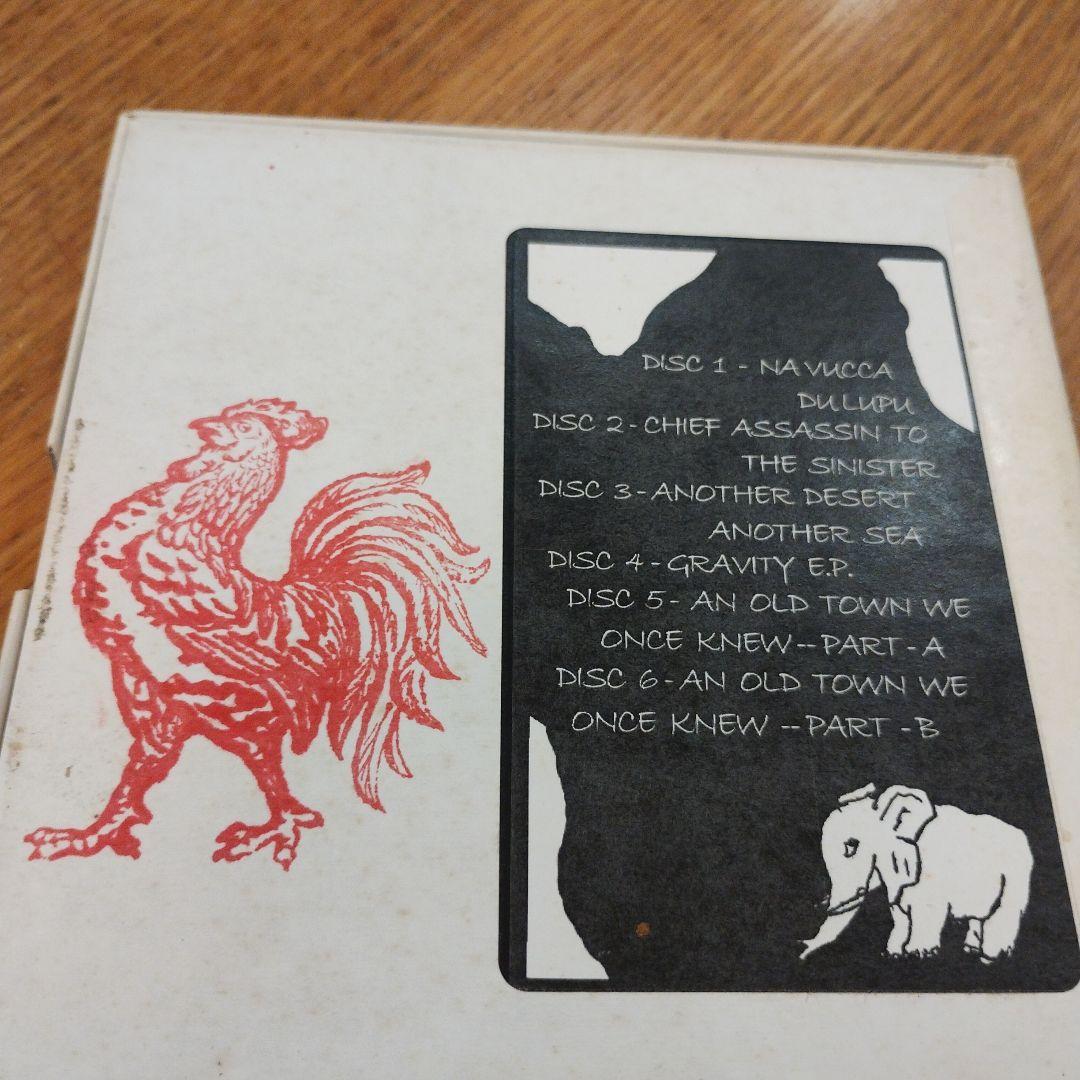 DISC 1 - NA VUCCA
DU LUPU
DISC 2 - CHIEF ASSASSIN TO
THE SINISTER
DISC 3 - ANOTHER DESERT
ANOTHER SEA
DISC 4 - GRAVITY E.P.
DISC 5 - AN OLD TOWN WE
ONCE KNEW -- PART - A
DISC 6 - AN OLD TOWN WE
ONCE KNEW -- PART - B